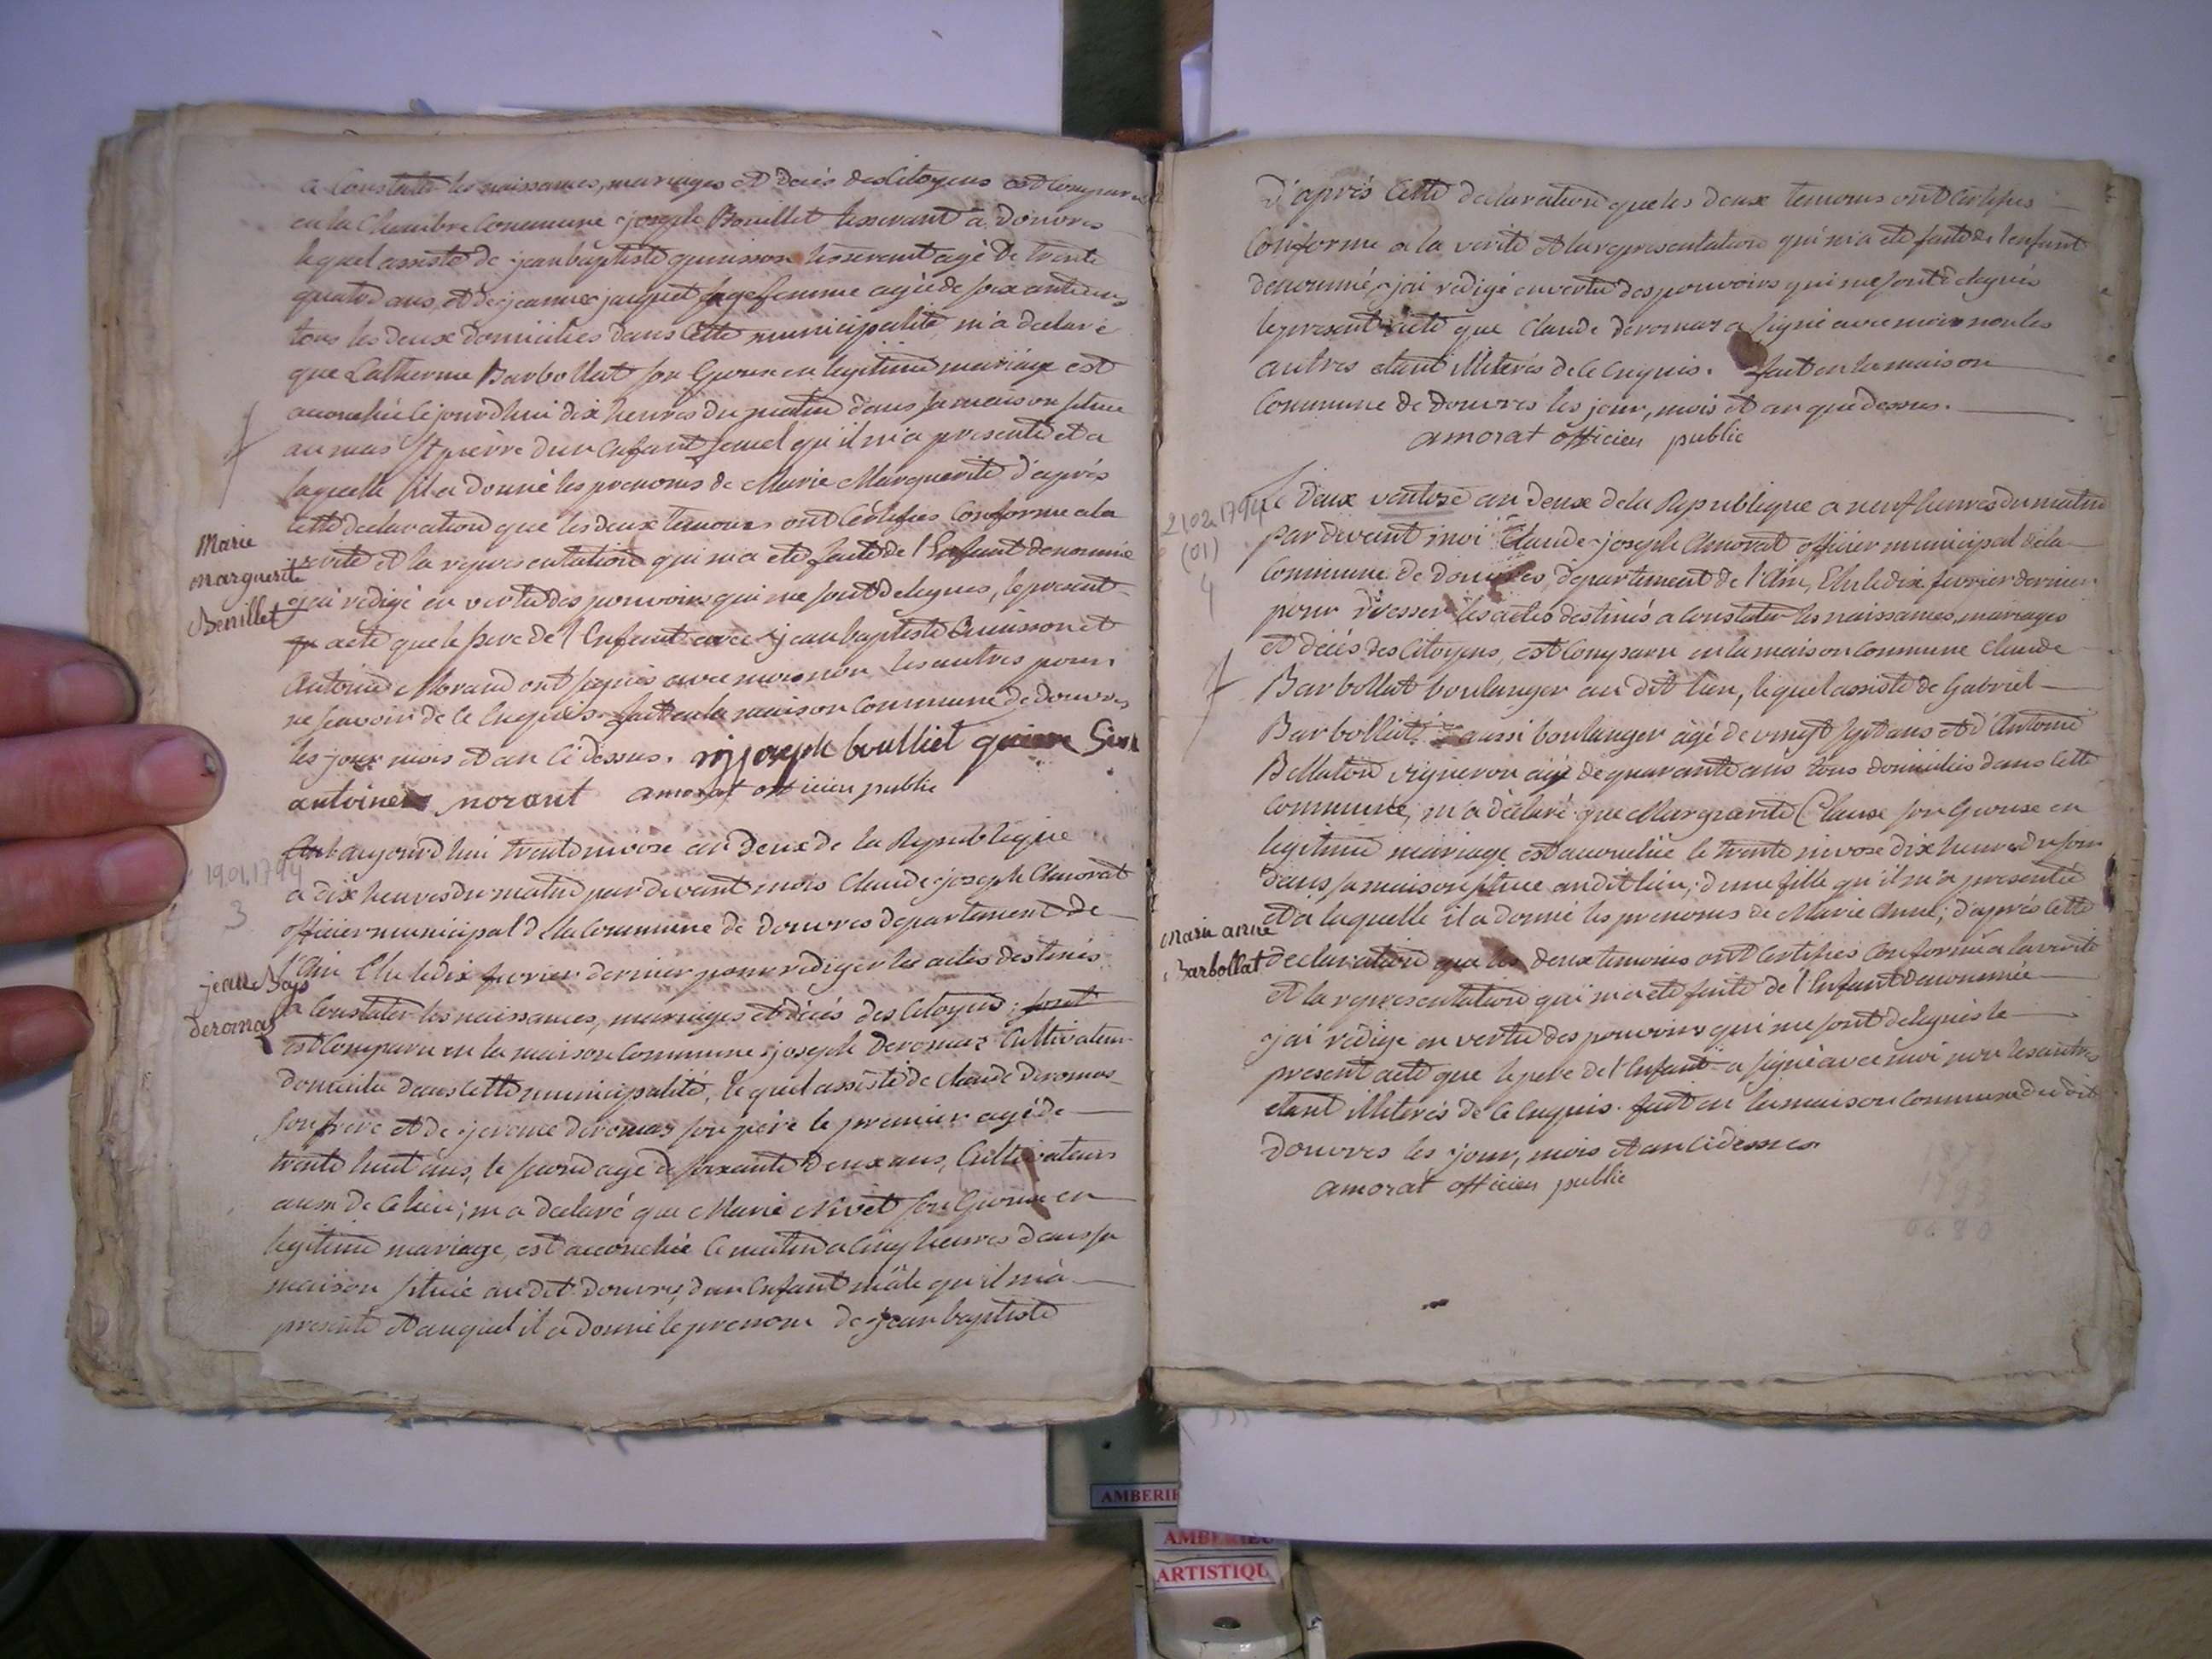 a Constater les naissances, mariages et decés des Citoyens est comparu
en la Chambre Commune joseph Bouillet tisserant a Douvres
lequel assisté de jean baptiste quinson tisserant agé de trente
quatre ans, et de jeanne jacquet sage femme agée de soixante ans
tous les deux domiciliés dans cette municipalité, m'a declaré
que Catherine Barbollat son Epouse en legitime mariage est
accouchée ce jourd'hui dix heures du matin dans sa maison située
au mas St pierre d'un Enfant femel qu'il m'a presenté et a
laquelle il a donné les prenoms de Marie Marguerite d'après
cette declaration que les deux temoins ont Certifiés Conforme a la
Marie
marguerite
Benillet
verité et la representation qui m'a eté faite de l'Enfant denommé
j'ai redigé en vertu des pouvoirs qui me sont delegués, le present
acte que le pere de l'Enfant avec jean baptiste Quinson et
Antoine Morand ont signés avec moi non les autres pour
ne sçavoir de ce Enquis. fait en la maison Commune de Douvres
les jour mois et an ci dessus. joseph bulliet
antoine morant amorat officier public
19.01.1794
3
aujourd'hui trente nivose an Deux de la Republique
a dix heures du matin par devant moi Claude joseph Amorat
officier municipal de la Commune de Douvres departement de
jean Bap
Deromas
l'Ain Elu le dix fevrier dernier pour rediger les actes destinés
a Constater les naissances, mariages et décés des Citoyens, sont
est Comparu en la maison Commune joseph Deromas Cultivateur
domicilié dans cette municipalité, lequel assisté de claude Deromas
son frère et de jerome deromas son père le premier agé de
trente huit ans, le second agé de soixante deux ans, Cultivateurs
aussi de ce lieu; m'a declaré que Marie Nivet son Epouse en
legitime mariage, est accouchée ce matin a Cinq heures dans sa
maison située au dit Douvres, d'un Enfant mâle qu'il m'a
presenté et auquel il a donné le prenom de jean baptiste
D'après Cette declaration que les deux temoins ont Certifiés
Conforme a la verité et la representation qui m'a eté faite de l'enfant
denommé, j'ai redigé en vertu des pouvoirs qui me sont delegués
le present acte que Claude deromas a signé avec moi non les
autres etant illiterés de ce Enquis. fait en la maison
Commune de Douvres les jour, mois et an que dessus.
amorat officier public
21.02.1794
(01)
4
Le Deux ventose an Deux de la Republique a neuf heures du matin
par devant moi Claude joseph Amorat officier municipal de la
Commune de Douvres, departement de l'Ain, Elu le dix fevrier dernier
pour dresser les actes destinés a Constater les naissances, mariages
et décés des Citoyens, est Comparu en la maison Commune Claude
Barbollat boulanger au dit lieu, lequel assisté de Gabriel
Barbollat aussi boulanger agé de vingt sept ans et d'Antoine
Bellaton vigneron agé de quarante ans tous domiciliés dans cette
Commune, m'a declaré que Margueritte Clause son Epouse en
legitime mariage est accouchée le trente nivose dix heures du soir
dans sa maison située au dit lieu, d'une fille qu'il m'a presentée
et a laquelle il a donné les prenoms de Marie Anne; d'après cette
Marie anne
Barbollat
declaration que les deux temoins ont Certifiés Conforme a la verité
et la representation qui m'a eté faite de l'Enfant denommée
j'ai redigé en vertu des pouvoirs qui me sont delegués le
present acte que le pere de l'Enfant a signé avec moi non les autres
etant illiterés de ce Enquis. fait en la maison Commune du dit
Douvres les jour, mois et an ci dessus
amorat officier public
AMBERIE
AMBERIEU
ARTISTIQU